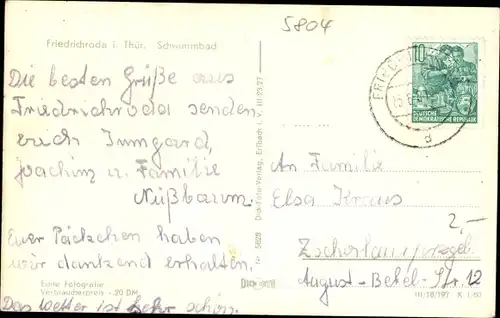 5804
Friedrichroda i. Thür. Schwimmbad
Die besten Grüße aus
Friedrichroda senden
euch Irmgard,
Joachim u. Familie
Nüßbaum.
Euer Päckchen haben
wir dankend erhalten.
Das Wetter ist sehr schön.
Echte Fotografie
Verbraucherpreis -.20 DM
Dick-Foto-Verlag, Erlbach i. V.
10
DEUTSCHE
DEMOKRATISCHE REPUBLIK
An Familie
Elsa Kraus
2,-
August-Bebel-Str. 12
III/18/197 K 1/60